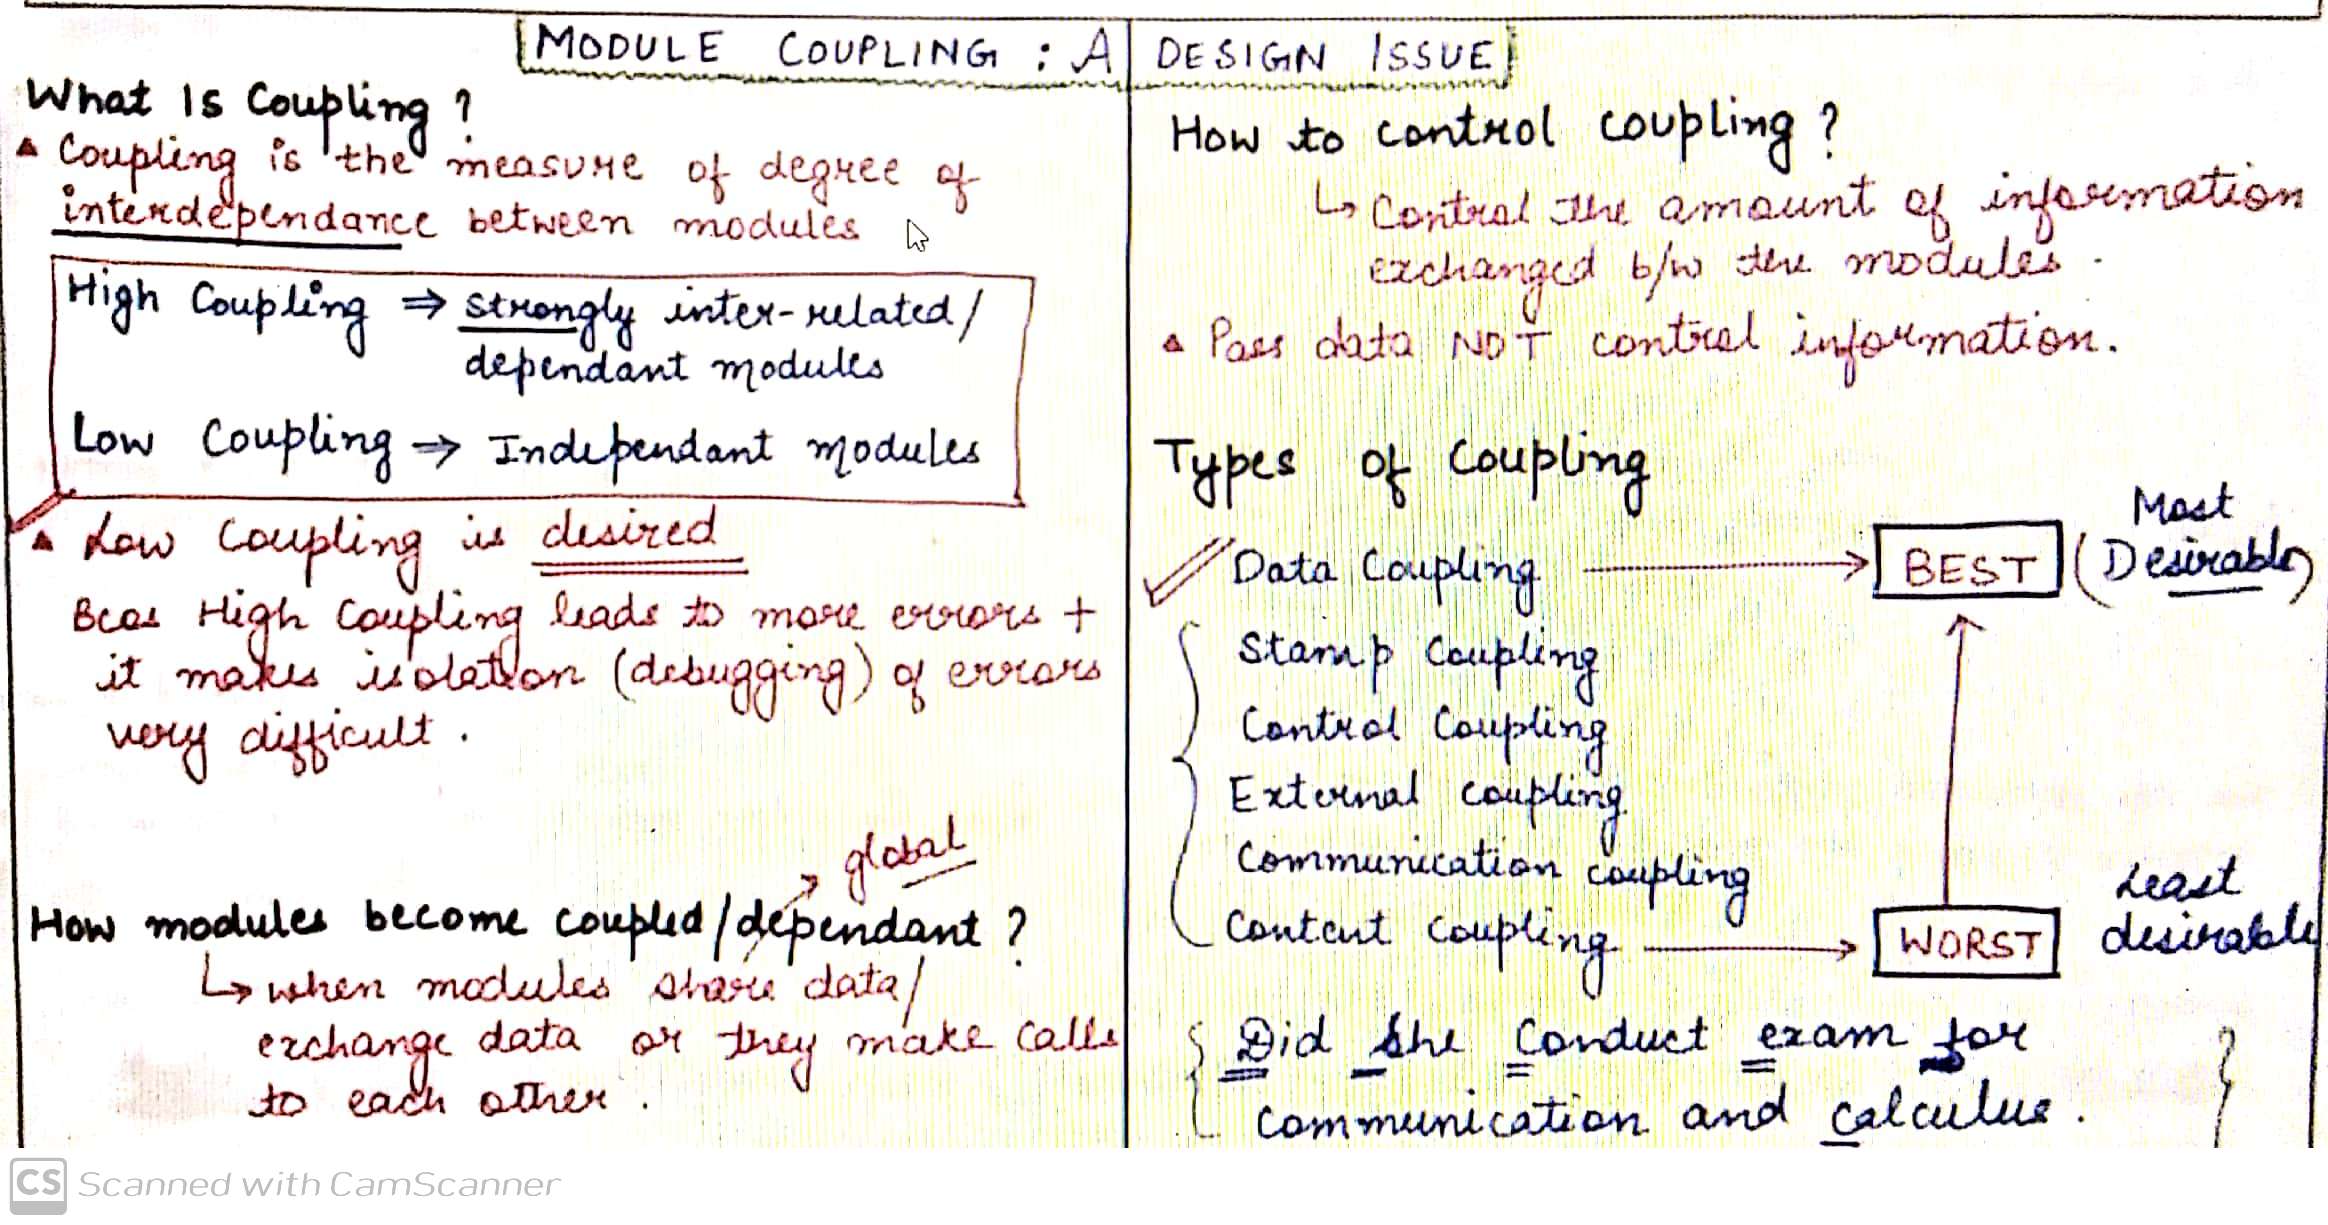 MODULE COUPLING : A DESIGN ISSUE
What Is Coupling ?
Coupling is the measure of degree of
interdependance between modules
High Coupling ⇒ strongly inter-related/
dependant modules
Low Coupling ⇒ Independant modules
Low Coupling is desired
Bcos High Coupling leads to more errors +
it makes isolation (debugging) of errors
very difficult .
global
How modules become coupled/dependant ?
↳ when modules share data/
exchange data or they make calls
to each other .
How to control coupling ?
↳ Control the amount of information
exchanged b/w the modules .
Pass data NOT control information.
Types of Coupling
Data Coupling → BEST (Most Desirable)
Stamp Coupling
Control Coupling
External coupling
Communication coupling
Content Coupling → WORST Least desirable
Did she Conduct exam for
communication and calculus .
CS Scanned with CamScanner